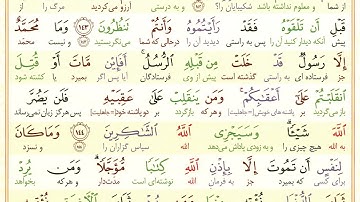 از شما و معلوم نداشته باشد شکیبایان را؟ آرزو می‌کردید مرگ را
قَبْلِ أَن تَلْقَوْهُ فَقَدْ رَأَيْتُمُوهُ وَأَنتُمْ تَنظُرُونَ ١٤٣ وَمَا مُحَمَّدٌ
آنکه دیدار کنید آن را پس به راستی دیدید آن را درحالی که شما می‌نگریستید و نیست محمد
إِلَّا رَسُولٌ قَدْ خَلَتْ مِن قَبْلِهِ ٱلرُّسُلُ ۚ أَفَإِيْن مَّاتَ أَوْ قُتِلَ
جز فرستاده ای به راستی گذشته است پیش از وی فرستادگان آیا پس اگر بمیرد یا کشته شود
ٱنقَلَبْتُمْ عَلَىٰٓ أَعْقَٰبِكُمْ ۚ وَمَن يَنقَلِبْ عَلَىٰ عَقِبَيْهِ فَلَن يَضُرَّ
بازمی‌گردید بر پاشنه‌های خویش (=جاهلیت) و هرکه برگردد بر دو پاشنهٔ خود (=جاهلیت) پس هرگز زیان نمی‌رساند
ٱللَّهَ شَيْـًٔا ۗ وَسَيَجْزِى ٱللَّهُ ٱلشَّٰكِرِينَ ١٤٤ وَمَا كَانَ
الله را هیچ و به زودی پاداش می‌دهد الله سپاس گزاران را و نسزد
لِنَفْسٍ أَن تَمُوتَ إِلَّا بِإِذْنِ ٱللَّهِ كِتَٰبًا مُّؤَجَّلًا ۗ وَمَن يُرِدْ
برای کسی که بمیرد جز به فرمان الله نوشته‌ای است مدت‌دار و هر که بخواهد